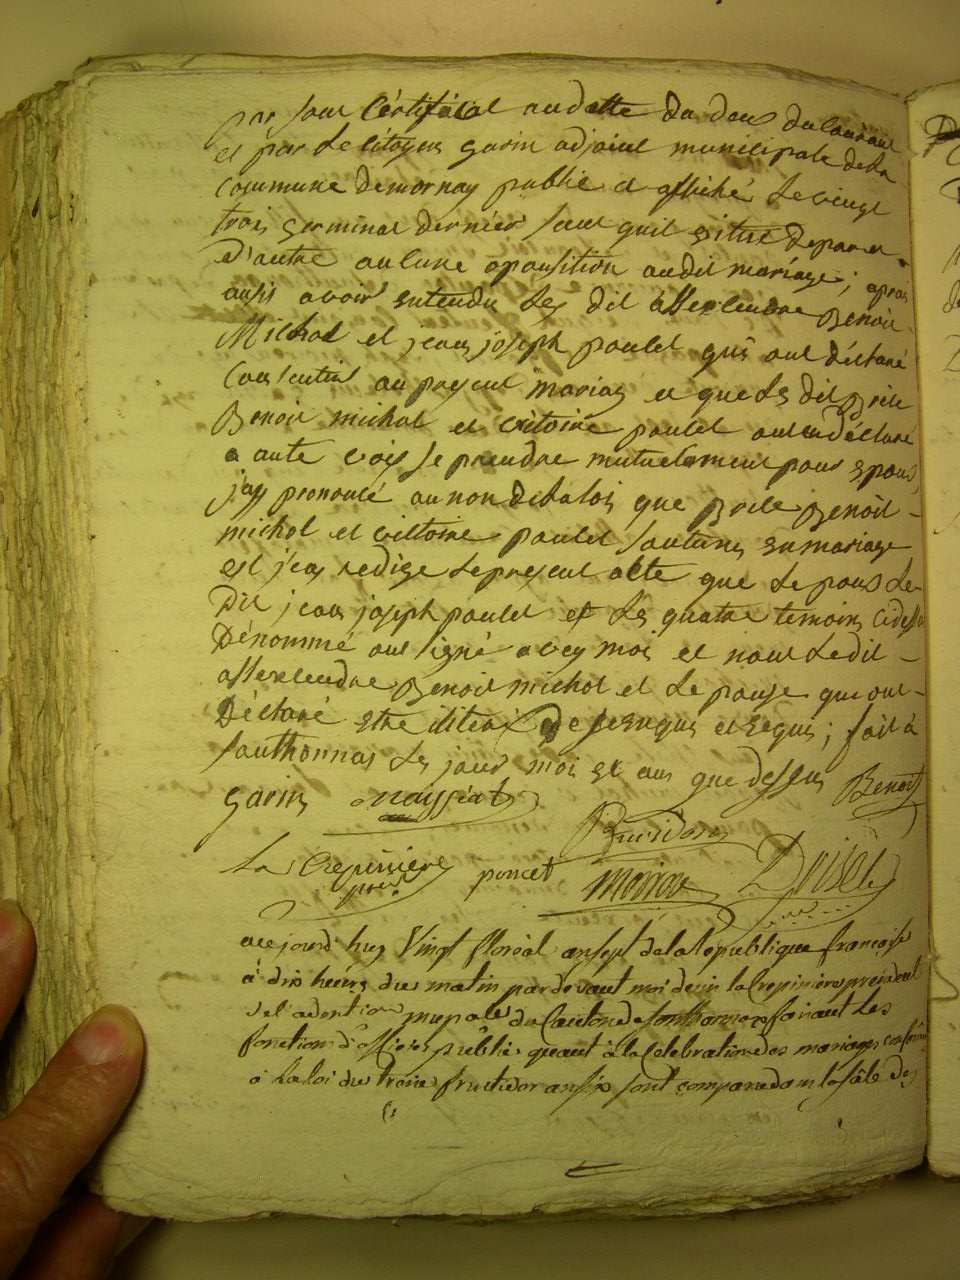 par son Certificat au datte du deux du Courant
et par Le Citoyen Garin adjoint municipale de la
Commune de mornay publié et affiché Le vingt
trois Germinal dernier sans quil exitte de part et
d'autre aucune aposition audit mariage; apres
ausis avoir entendu Les dit allexendre Benoit
Michol et jean joseph poulet quis ont déclaré
Consentirs au present mariage et que Les dit
Benoit michol et victoire poulet ont déclaré
a aute voix se prendre mutuelement pour epoux
j'ay prononcé au nom de la lois que Benoit
michol et victoire poulet sont unis en mariage
et j'en redige Le present acte que Le Le
Dit jean joseph poulet et Les quatre temoins cidessus
Dénommé ont signé avec moi et non Ledit
allexendre Benoit michol et Le qui ont
Déclaré etre de ce enquis et requis; fait à
Southonnas Les jour mois et ans que dessus Benoit
Garin
La Crepiniere poncet
aujourd'huy Vingt floréal an sept de la République françoise
à dix heures du matin par devant moi denis la Crepiniere président
de l'adention mupale du Canton de Sonthonnas faisant Les
fonctions d'officier public quant à la Celebration des mariages
à La loi du treize fructidor an six sont comparu dans la sâle des